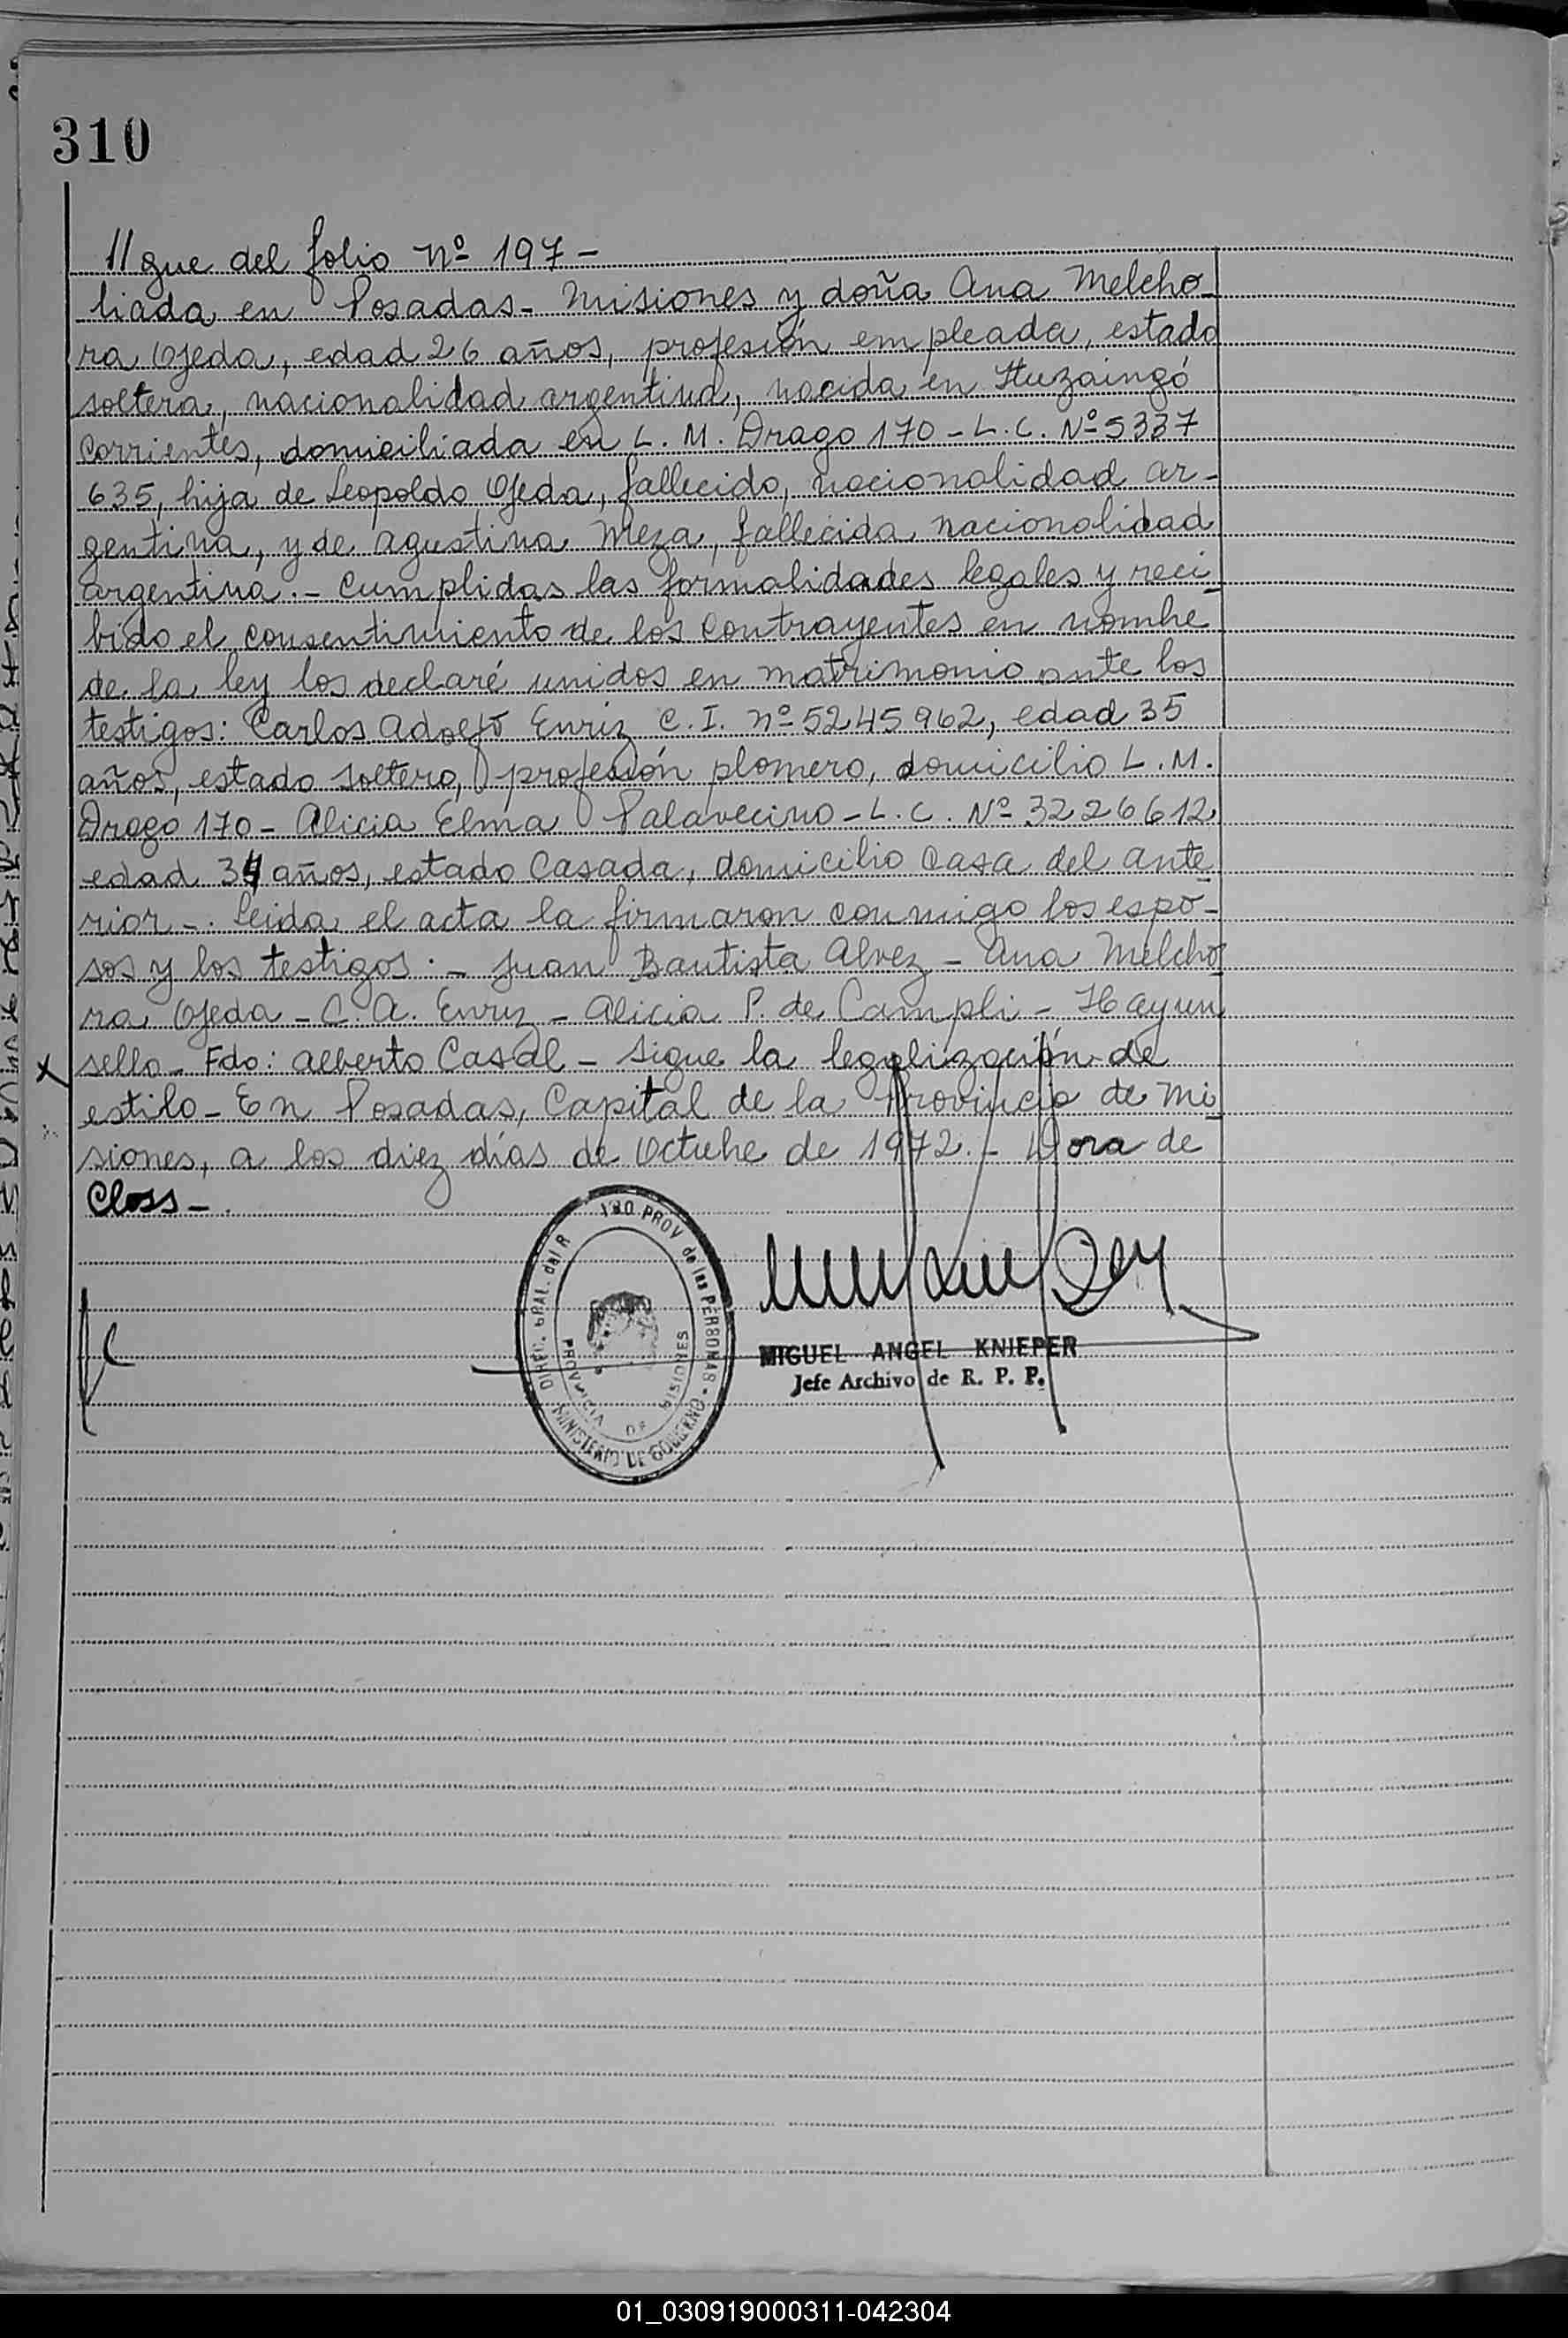 310
//gue del folio Nº 197 -
liada en Posadas - Misiones y doña Ana Melcho-
ra Ojeda, edad 26 años, profesión empleada, estado
soltera, nacionalidad argentina, nacida en Ituzaingó
Corrientes, domiciliada en L. M. Drago 170 - L. C. Nº 5337
635, hija de Leopoldo Ojeda, fallecido, nacionalidad ar-
gentina, y de Agustina Meza, fallecida, nacionalidad
argentina. - Cumplidas las formalidades legales y reci-
bido el consentimiento de los contrayentes en nombre
de la ley los declaré unidos en matrimonio ante los
testigos: Carlos Adolfo Enriz C. I. Nº 5245962, edad 35
años, estado soltero, profesión plomero, domicilio L. M.
Drago 170 - Alicia Elma Palavecino - L. C. Nº 3226612
edad 34 años, estado casada, domicilio casa del ante-
rior -. Leida el acta la firmaron conmigo los espo-
sos y los testigos. - Juan Bautista Alvez - Ana Melcho-
ra Ojeda - C. A. Enriz - Alicia P. de Campli - Hay un
sello - Fdo: Alberto Casal - Sigue la legalización de
estilo - En Posadas, Capital de la Provincia de Mi-
siones, a los diez días de Octubre de 1972. - Dora de
Closs -.
DIREC. GRAL. del R PROV de las PERSONAS
MINISTERIO DE GOBIERNO
PROVINCIA DE MISIONES
MIGUEL ANGEL KNIEPER
Jefe Archivo de R. P. P.
01_030919000311-042304